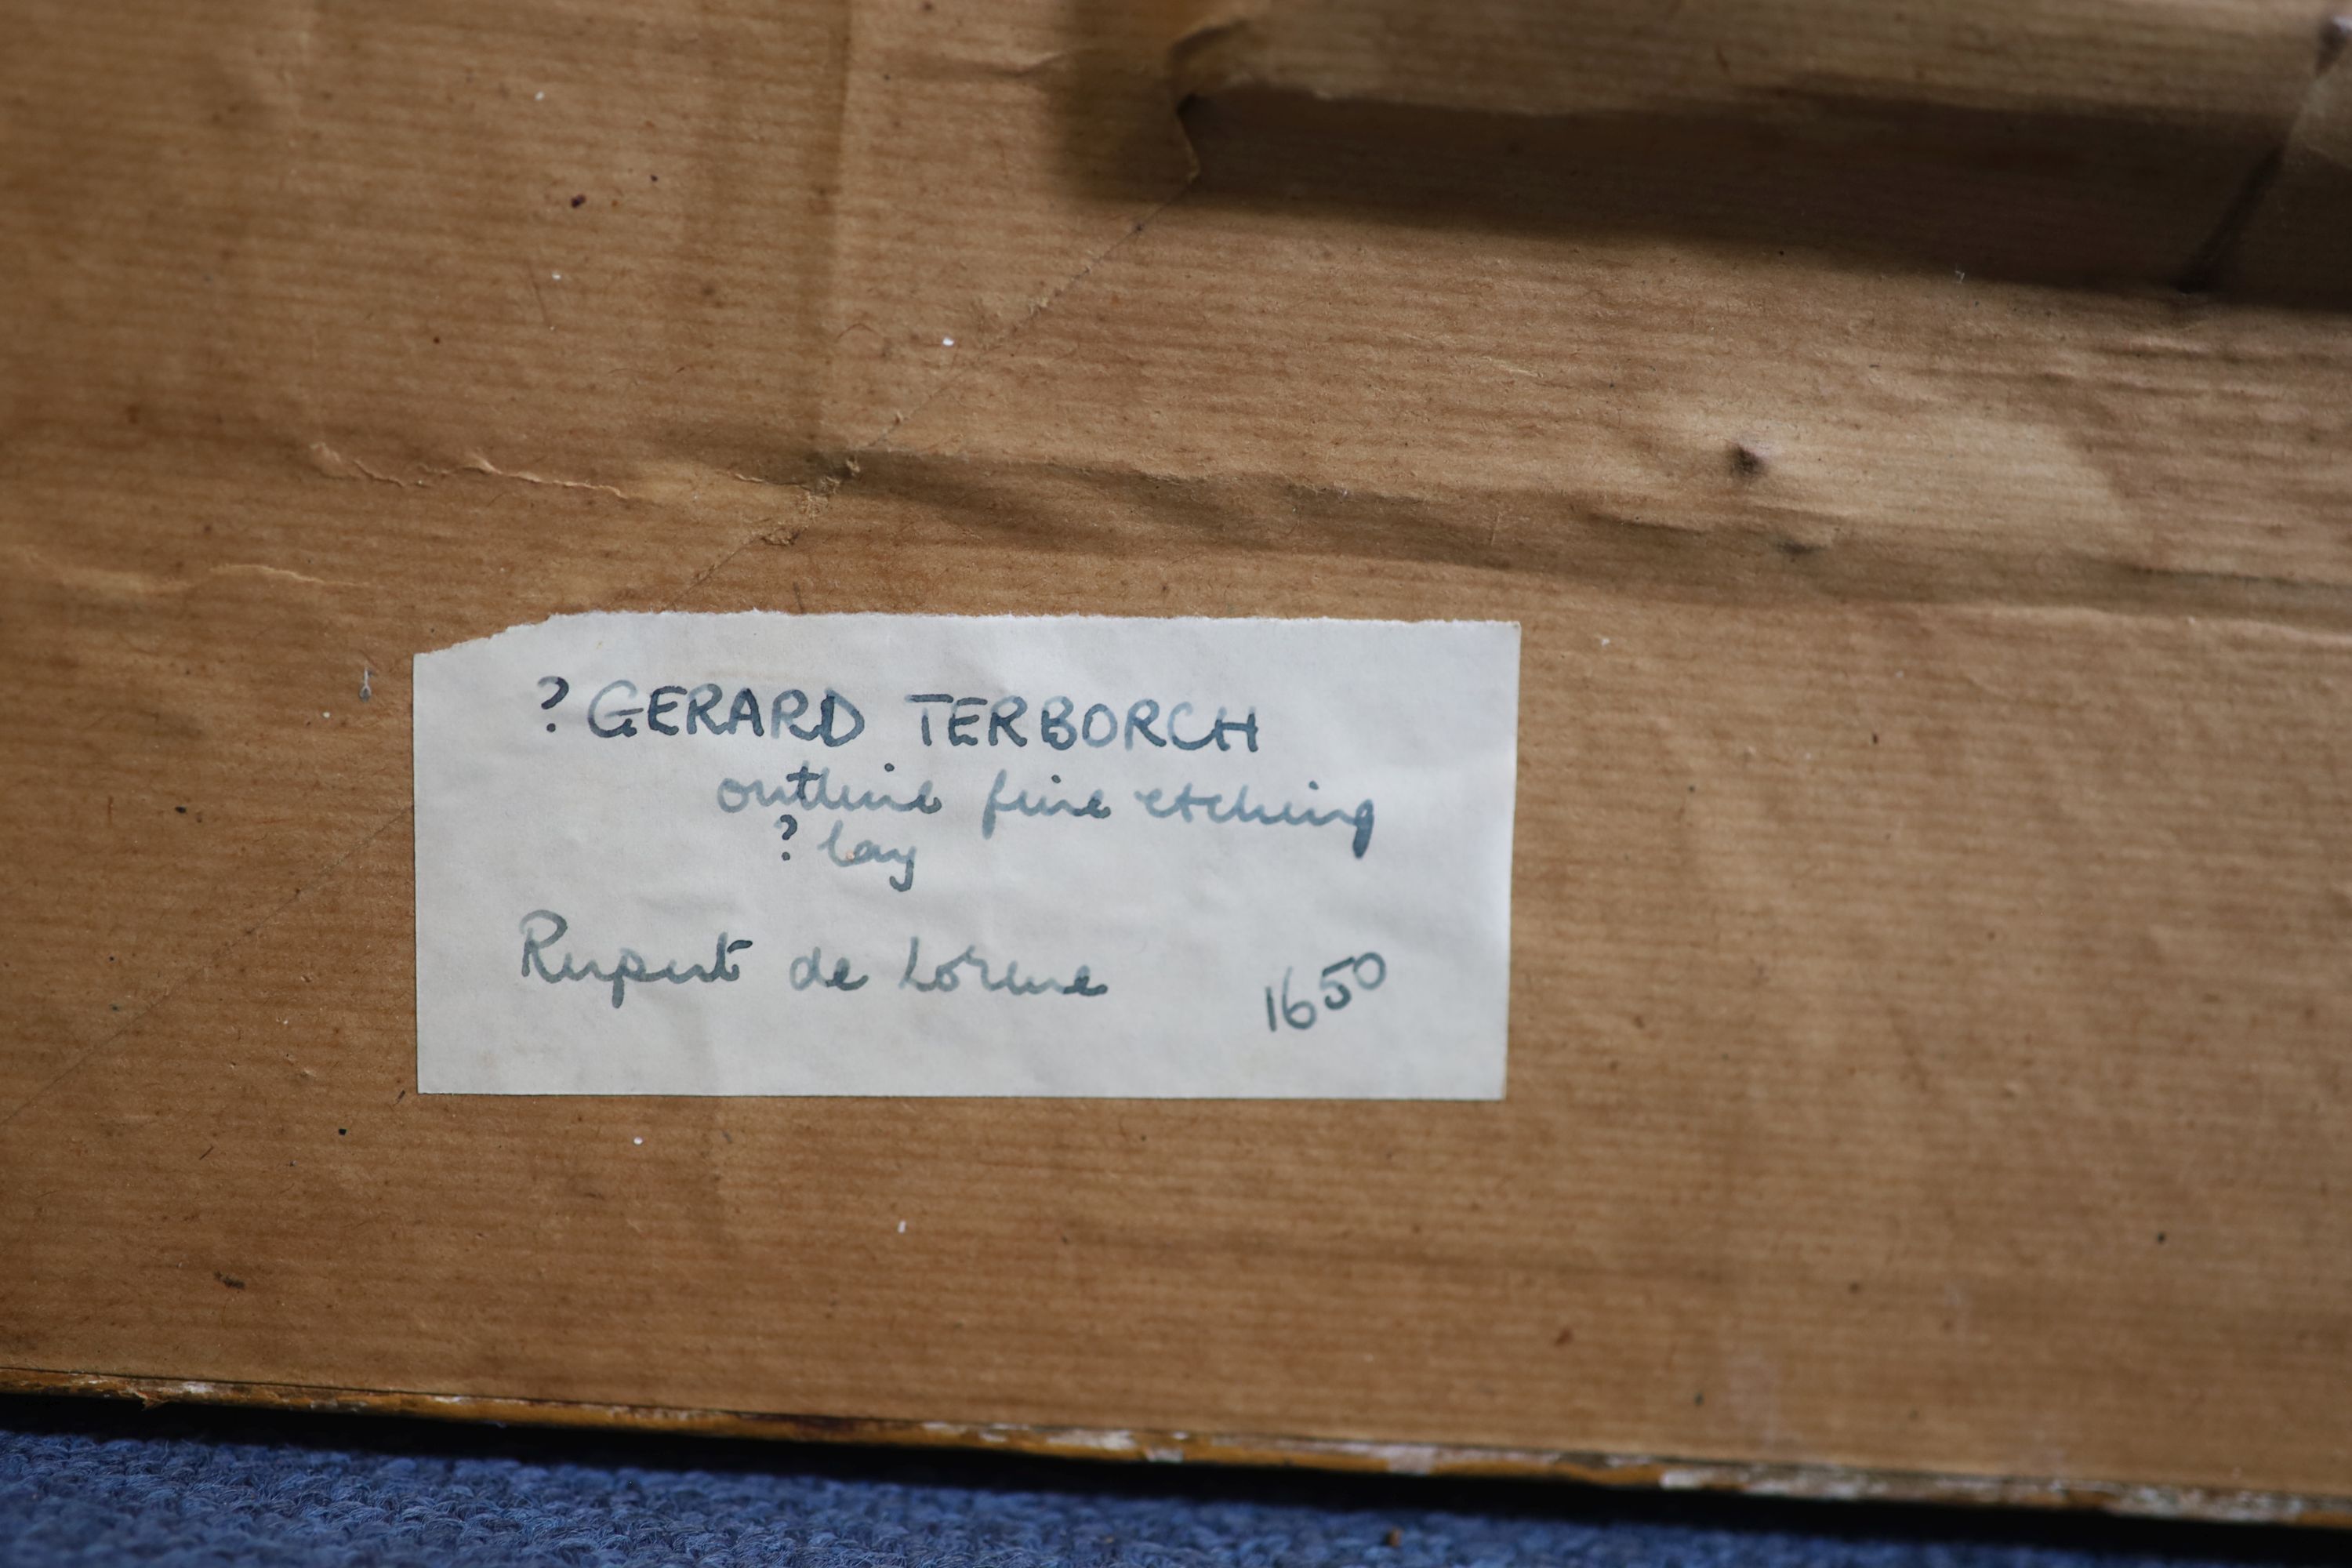 ? GERARD TERBORCH
outline fine etching
? lay
Rupert de Lorene
1650